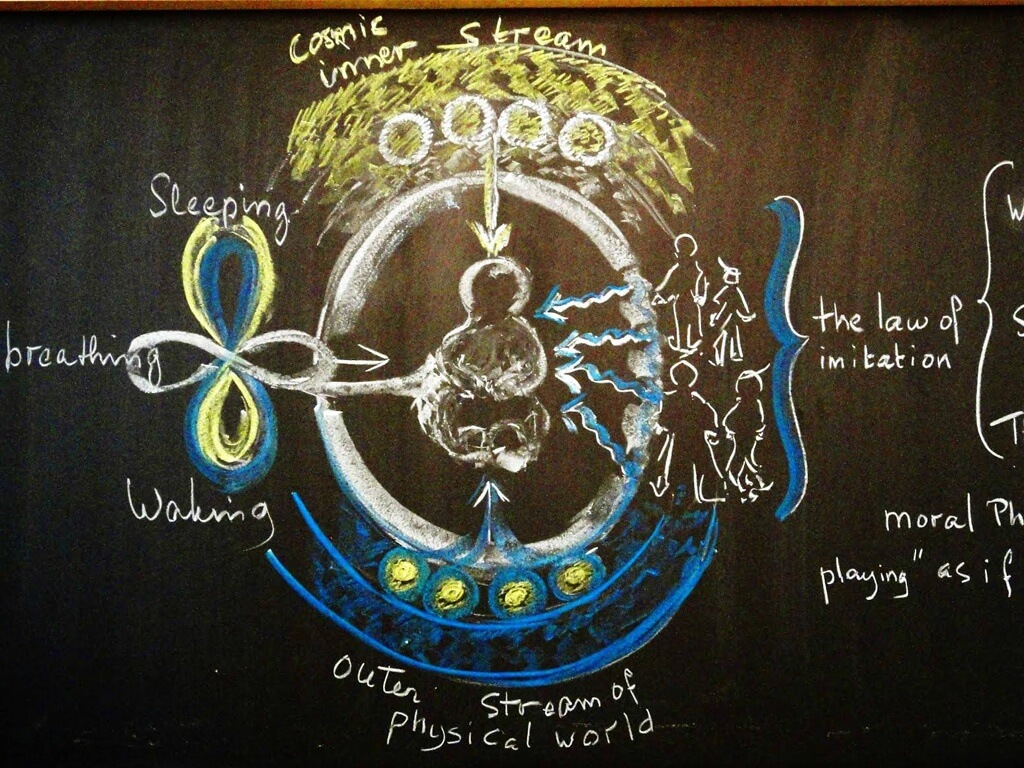 Cosmic
inner stream
Sleeping
breathing
Waking
the law of
imitation
W
S
T
moral Ph
playing" as if
outer stream of
physical world